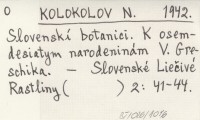 O KOLOKOLOV N. 1972.
Slovenskí botanici. K osem-
desiatym narodeninám V. Gre-
schika. — Slovenské Liečivé
Rastliny ( ) 2: 41-44.